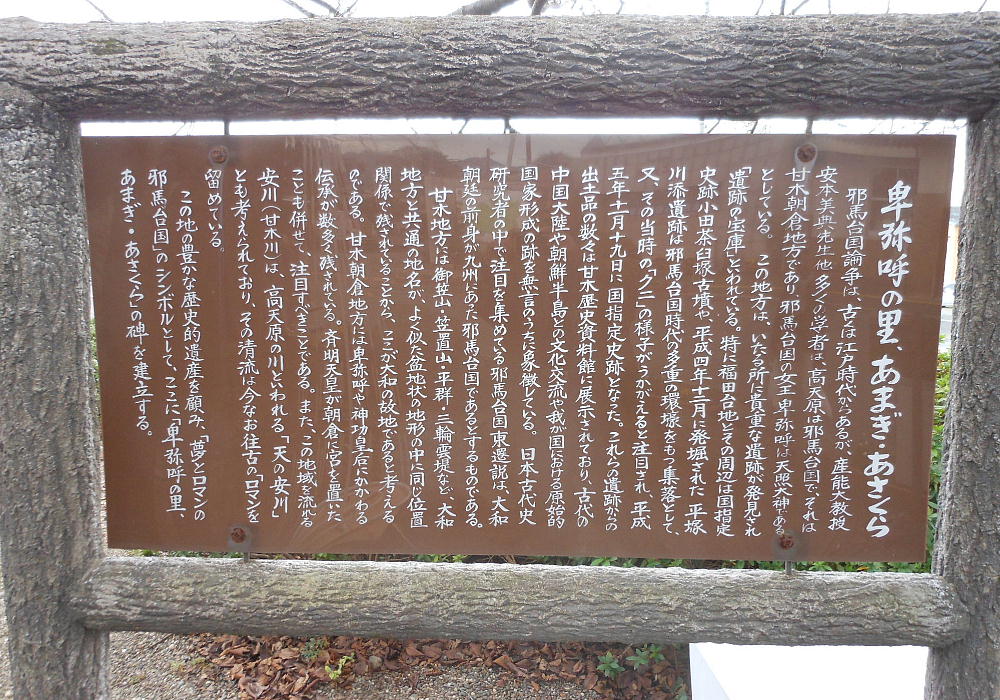 卑弥呼の里、あまぎ・あさくら
邪馬台国論争は、古くは江戸時代からあるが、産能大教授
安本美典先生他多くの学者は、高天原は邪馬台国で、それは
甘木朝倉地方であり、邪馬台国の女王・卑弥呼は天照大神である
としている。この地方は、いたる所に貴重な遺跡が発見され
「遺跡の宝庫」といわれている。特に福田台地とその周辺は国指定
史跡小田茶臼塚古墳や、平成四年十二月に発堀された平塚
川添遺跡は邪馬台国時代の多重の環壕をもつ集落として、
又、その当時の「クニ」の様子がうかがえると注目され、平成
五年十二月十九日に国指定史跡となった。これらの遺跡からの
出土品の数々は甘木歴史資料館に展示されており、古代の
中国大陸や朝鮮半島との文化交流や我が国における原始的
国家形成の跡を無言のうちに象徴している。日本古代史
研究者の中で注目を集めている邪馬台国東遷説は、大和
朝廷の前身が九州にあった邪馬台国であるとするものである。
甘木地方には御笠山・笠置山・平群・三輪・雲堤など、大和
地方と共通の地名が、よく似た盆地状の地形の中に同じ位置
関係で残されていることから、ここが大和の故地であると考える
のである。甘木朝倉地方には卑弥呼や神功皇后にかかわる
伝承が数多く残されている。斉明天皇が朝倉に宮を置いた
ことも併せて、注目すべきことである。また、この地域を流れる
安川(甘木川)は、高天原の川といわれる「天の安川」
とも考えられており、その清流は今なお往古の「ロマン」を
留めている。
この地の豊かな歴史的遺産を顧み、「夢とロマンの
邪馬台国」のシンボルとして、ここに「卑弥呼の里、
あまぎ・あさくら」の碑を建立する。